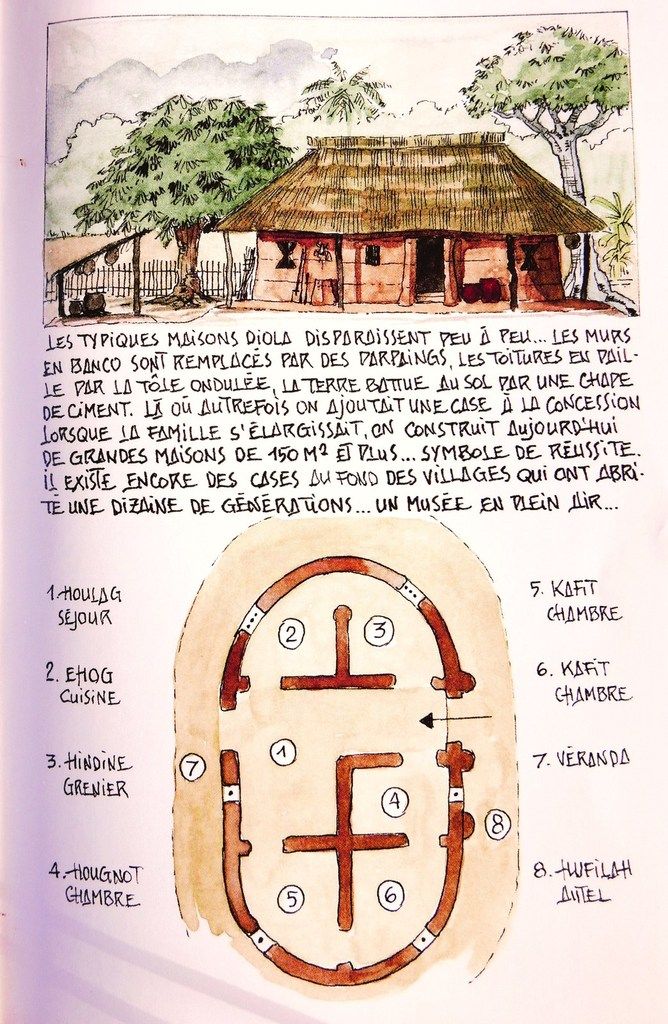 LES TYPIQUES MAISONS DIOLA DISPARAISSENT PEU À PEU... LES MURS
EN BANCO SONT REMPLACÉS PAR DES PARPAINGS, LES TOITURES EN PAIL-
LE PAR LA TÔLE ONDULÉE, LA TERRE BATTUE AU SOL PAR UNE CHAPE
DE CIMENT. LÀ OÙ AUTREFOIS ON AJOUTAIT UNE CASE À LA CONCESSION
LORSQUE LA FAMILLE S'ÉLARGISSAIT, ON CONSTRUIT AUJOURD'HUI
DE GRANDES MAISONS DE 150 M² ET PLUS... SYMBOLE DE RÉUSSITE.
IL EXISTE ENCORE DES CASES AU FOND DES VILLAGES QUI ONT ABRI-
TÉ UNE DIZAINE DE GÉNÉRATIONS... UN MUSÉE EN PLEIN AIR...
1. HOULAG
SÉJOUR
2. EHOG
CUISINE
3. HINDINE
GRENIER
4. HOUGNOT
CHAMBRE
5. KAFIT
CHAMBRE
6. KAFIT
CHAMBRE
7. VÉRANDA
8. HUFILAH
AUTEL
2
3
1
7
4
8
5
6